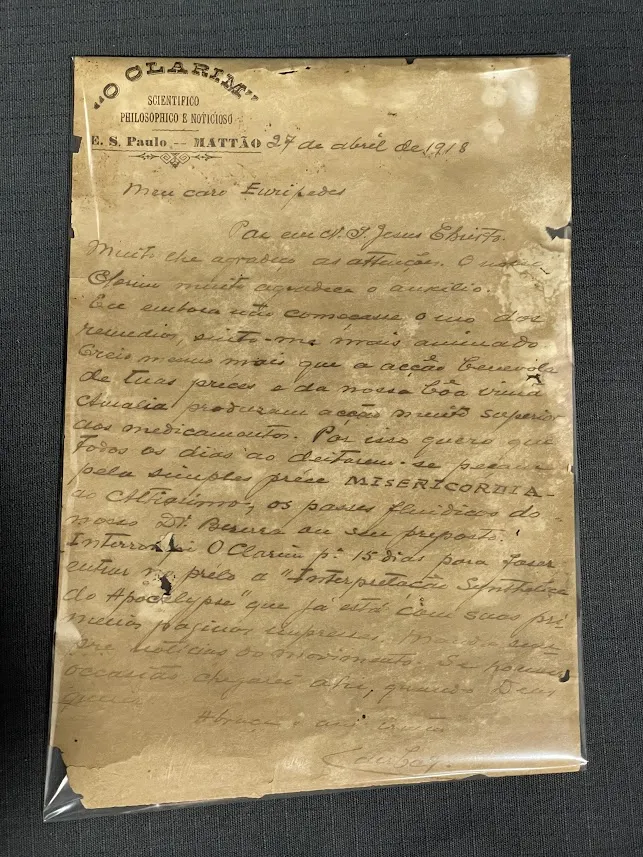 "O CLARIM"
SCIENTIFICO
PHILOSOPHICO E NOTICIOSO
E. S. Paulo -- MATTÃO 27 de abril de 1918
Meu caro Euripedes
Paz em N. S. Jesus Christo.
Muito lhe agradeço as attenções. O nosso
Clarim muito agradece o auxilio.
Eu embora não começasse o uso dos
remedios, sinto-me mais animado
Creio mesmo mais que a acção benevola
de tuas preces e da nossa bôa irmã
Amalia produzam acção muito superior
aos medicamentos. Por isso quero que
todos os dias ao deitarem-se peçam
pela simples préce MISERICORDIA-
ao Altissimo, os passes fluidicos do
nosso Dr. Bezerra ou seu preposto.
Interrompi O Clarim p: 15 dias para fazer
entrar no prélo a "Interpretação Synthetica
do Apocalypse" que já está com suas pri-
meiras paginas impressas. Manda sem-
pre noticias do movimento. Se houver
occasião chegarei ahi, quando Deus
Abraça o am. irmão